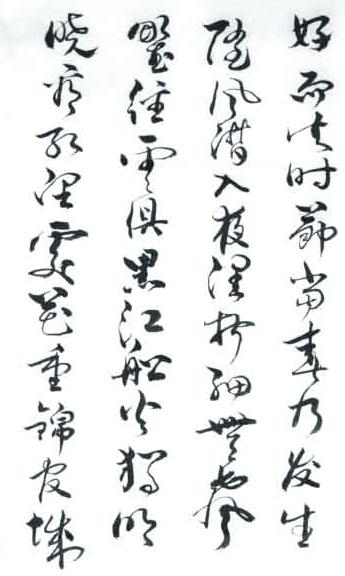 好雨知时節当春乃发生
随风潜入夜润物细無聲
野径雲俱黑江船火獨明
晓看红湿處花重錦官城